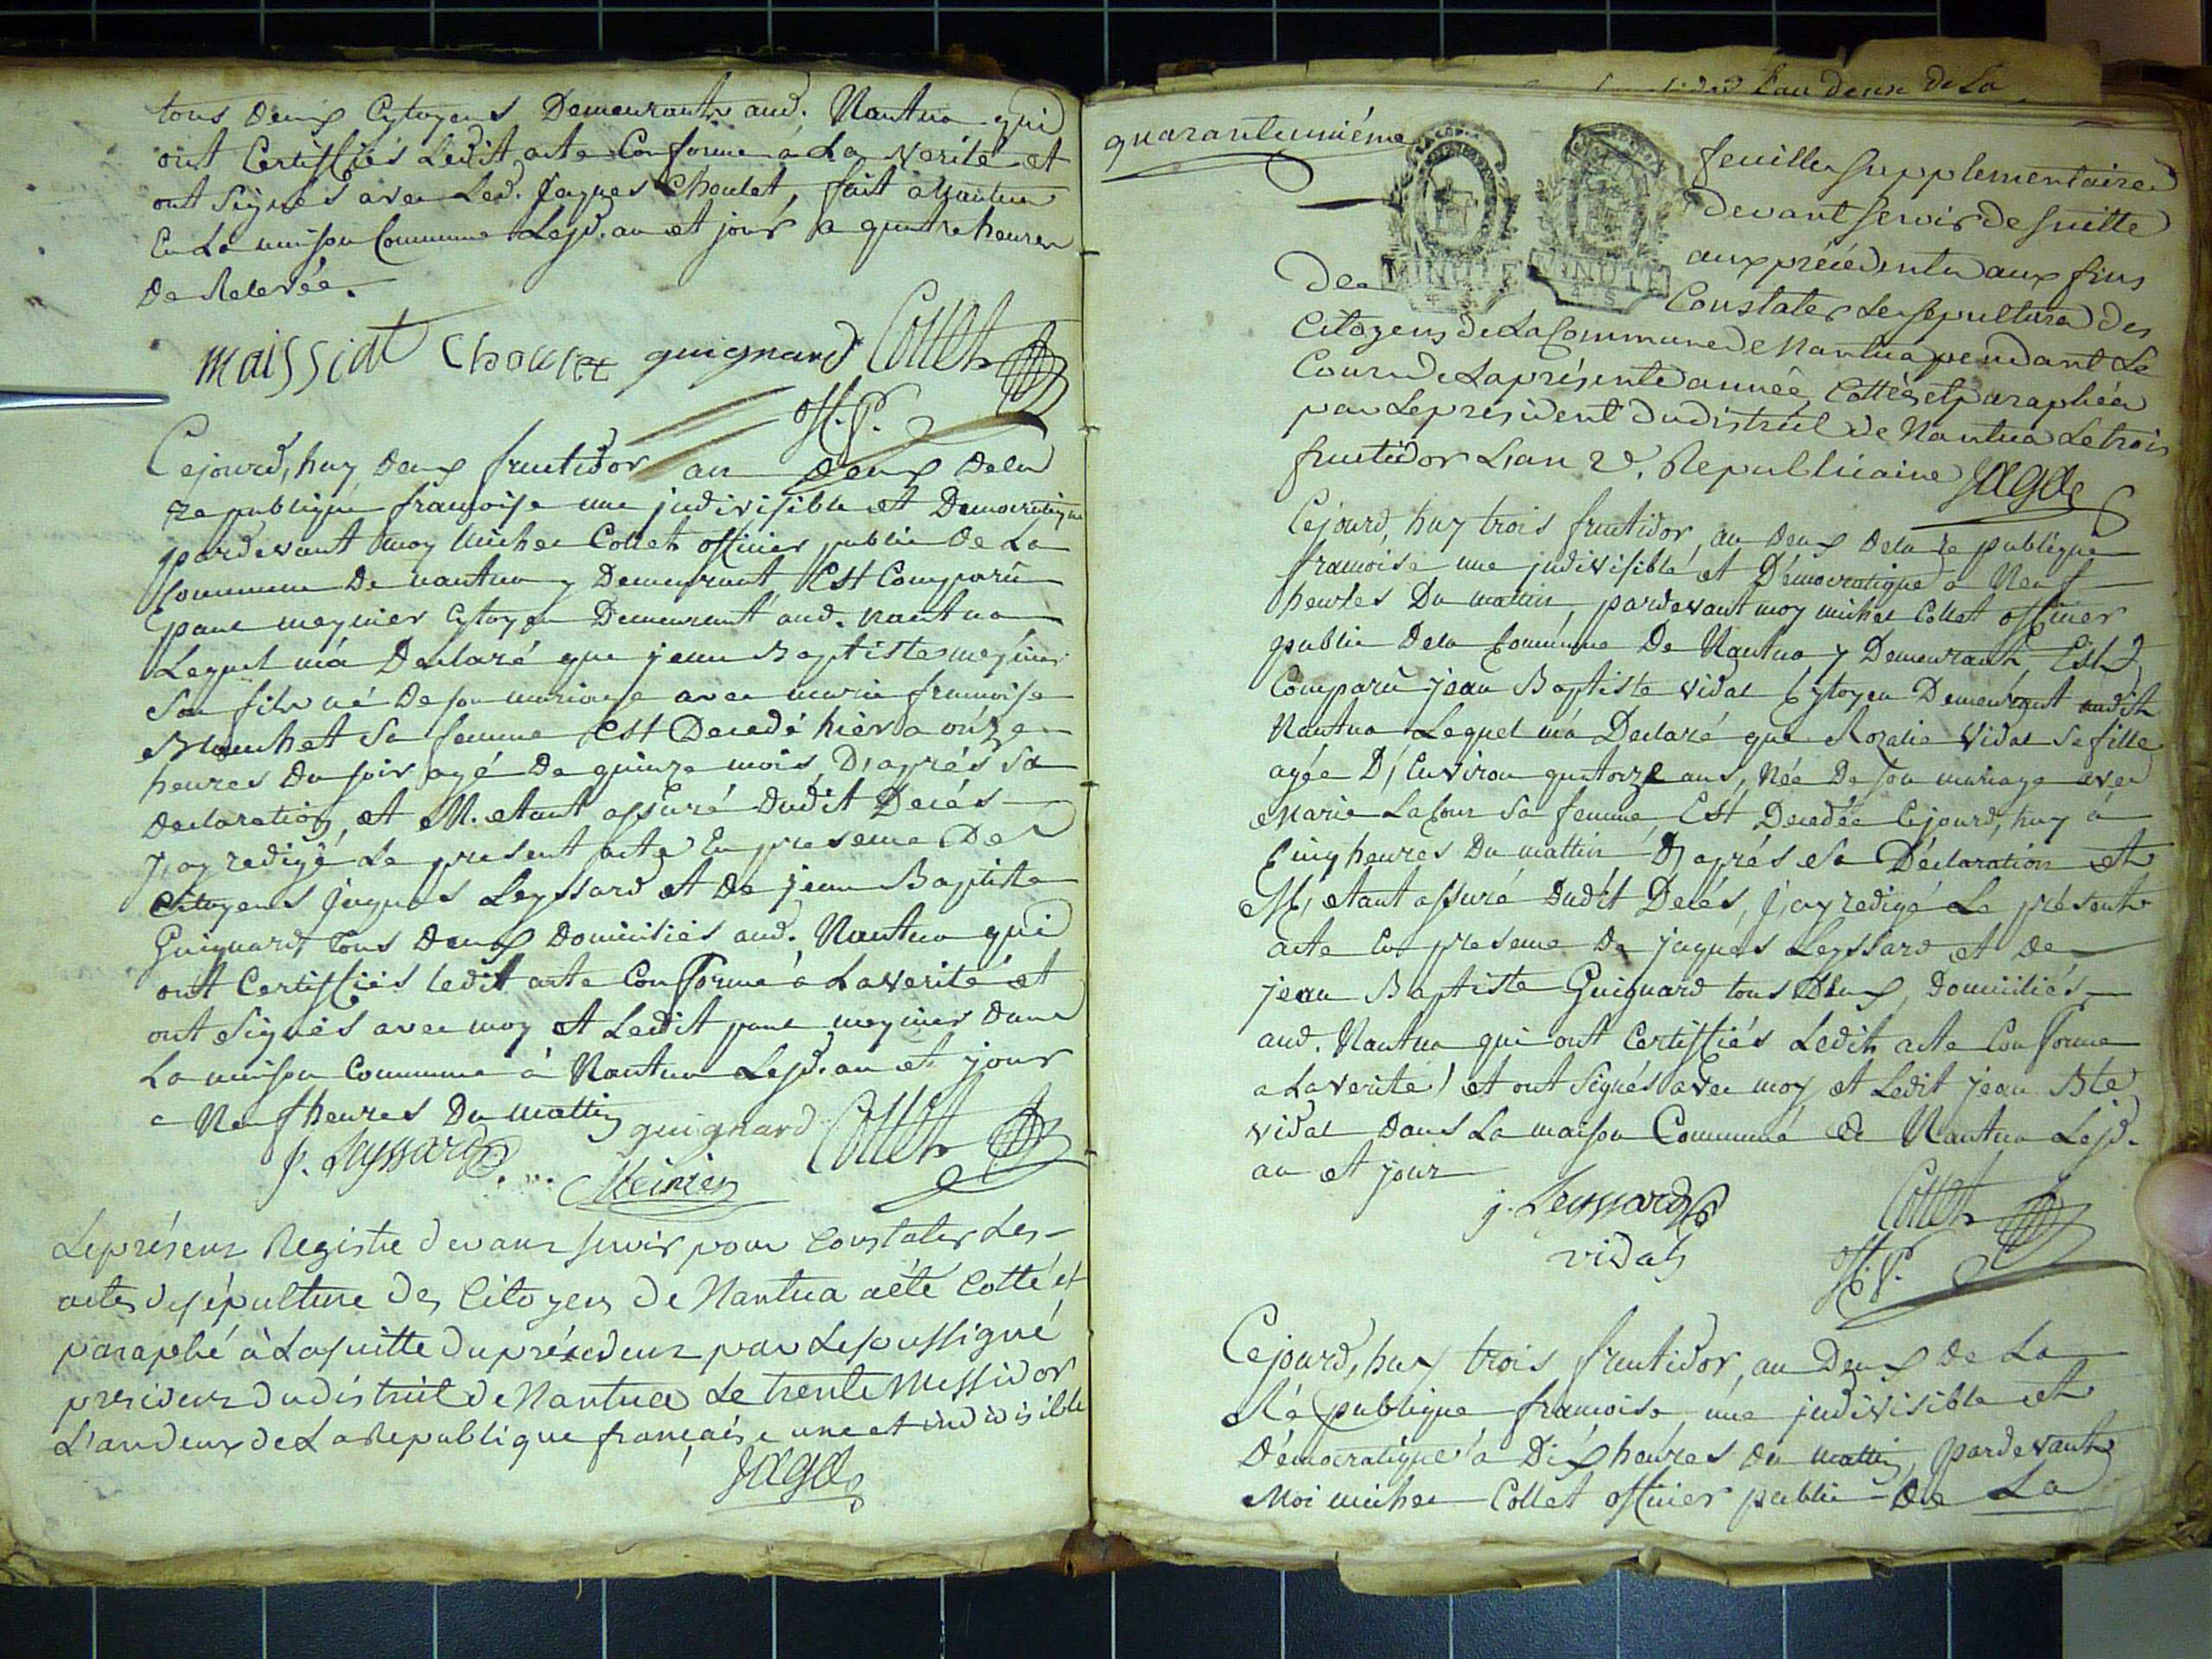 tous deux Cytoyens Demeurants aud. Nantua qui
ont Certiffiés Ledit acte Conforme a La verité et
ont Signés avec Led. Jaques Choulet, fait a Nantua
En La maison Commune Lesd. an et jour a quatre heures
De Relevée.
maissiat Choulet guignard Collet
off. p.
Cejourd,huy deux fructidor an deux dela
republique françoise une jndivisible et Democratique
pardevant moy Michel Collet officier public De La
Commune De nantua y Demeurant, Est Comparu
paul meynier Cytoyen Demeurant aud. nantua
Lequel m'a Declaré que jean Baptiste meynier
Son fils né de son mariage avec marie françoise
Blanchet Sa femme Est Decedé hièr a onze
heures du soir agé De quinze mois D,aprés Sa
Declaration, et M. etant assuré dudit Decés
J,ay redigé Le present acte En presence De
Citoyens jaques Leyssard et De jean Baptiste
Guignard tous deux domiciliés aud. Nantua qui
ont Certiffiés ledit acte Conforme á La verité et
ont Signés avec moy et Ledit paul meynier dans
La maison Commune á Nantua Lesd. an et jour
a Neuf heures Du mattin
j. Leyssard guignard Collet
Meinier
Le présent Registre devant servir pour Constater Les
actes de sépulture des Citoyens de Nantua a été Cotté et
paraphé à La suitte du précédent par Le soussigné
president du district de Nantua Le trente Messidor
L'an deux de La Republique française une et indivisible
Jagot
L'an deux De La
quarante uniéme
MINUTE
MINUTE
4 S
feuilles supplementaires
devant servir de suitte
aux précédentes aux fins
De Constater Les sépultures des
Citoyens de La Commune de Nantua pendant Le
Cours de La présente année, Cottées et paraphées
par Le président du district de Nantua Le trois
fructidor L'an 2e. Republicaine Jagot
Cejourd,huy trois fructidor, an deux dela republique
françoise une jndivisible et Démocratique a Neuf
heures Du mattin, pardevant moy michel Collet officier
public Dela Commune De Nantua y Demeurant, Est
Comparu jean Baptiste vidal Cytoyen Demeurant audit
Nantua Lequel m'a Declaré que Rozalie Vidal Sa fille
agée D,Environ quatorze ans, Née De son mariage avec
Marie Lacour Sa femme, Est Decedée Cejourd,huy á
Cinq heures Du mattin D,aprés Sa Déclaration et
M, etant assuré Dudit Decés, j,ay redigé Le présent
acte En presence De jaques Leyssard et De
jean Baptiste Guignard tous Deux, Domiciliés
aud. Nantua qui ont Certiffiés Ledit acte Conforme
a La verité, et ont Signés avec moy et Ledit jean Bte
vidal Dans La maison Commune de Nantua Lesd.
an et jour
j. Leyssard Collet
vidal off. p.
Cejourd,huy trois fructidor, an Deux De La
République françoise une jndivisible et
Démocratique a Dix heures du mattin, pardevant
Moi michel Collet officier public De La